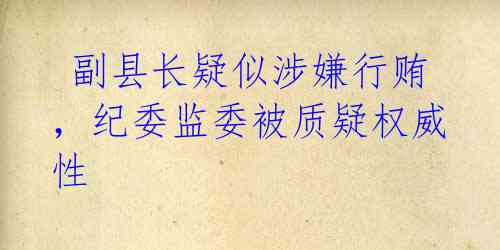 副县长疑似涉嫌行贿
，纪委监委被质疑权威
性